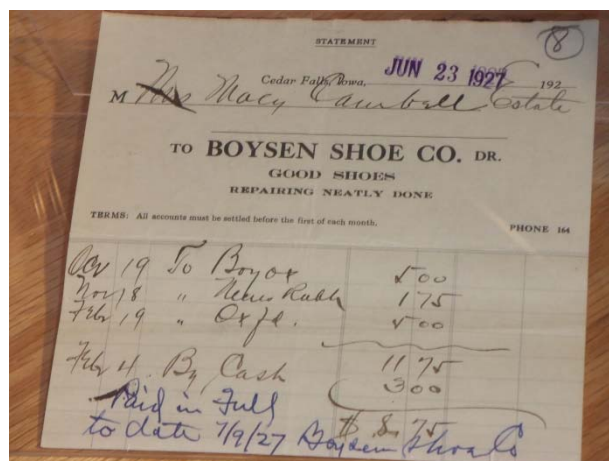 8
STATEMENT
Cedar Falls, Iowa, JUN 23 1927 192
M Mrs Macy Campbell Estate
TO BOYSEN SHOE CO. DR.
GOOD SHOES
REPAIRING NEATLY DONE
TERMS: All accounts must be settled before the first of each month.
PHONE 164
19 To Boy ox 5 00
Nov 18 " Mens Rubb 1 75
Feb 19 " Oxfd. 5 00
11 75
Feb 4 By Cash 3 00
$ 8.75
Paid in Full
to date 7/9/27 Boysen Shoe Co